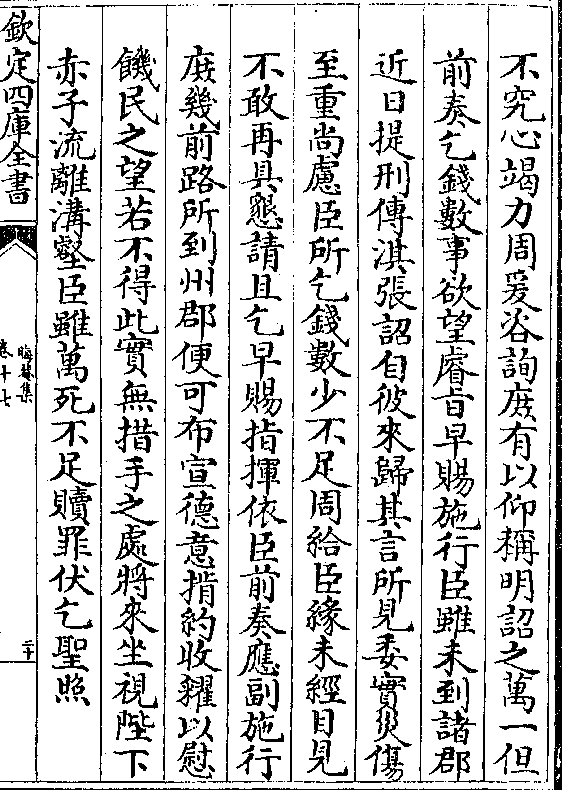 不究心竭力周爰咨詢庻有以仰稱明詔之萬一但
前奏乞錢數事欲望睿旨早賜施行臣雖未到諸郡
近日提刑傅淇張詔自彼來歸其言所見委實災傷
至重尚慮臣所乞錢數少不足周給臣緣未經目見
不敢再具懇請且乞早賜指揮依臣前奏應副施行
庻幾前路所到州郡便可布宣德意指約收糴以慰
饑民之望若不得此實無措手之處將來坐視陛下
赤子流離溝壑臣雖萬死不足贖罪伏乞聖照
欽定四庫全書
晦菴集
卷十七
二十